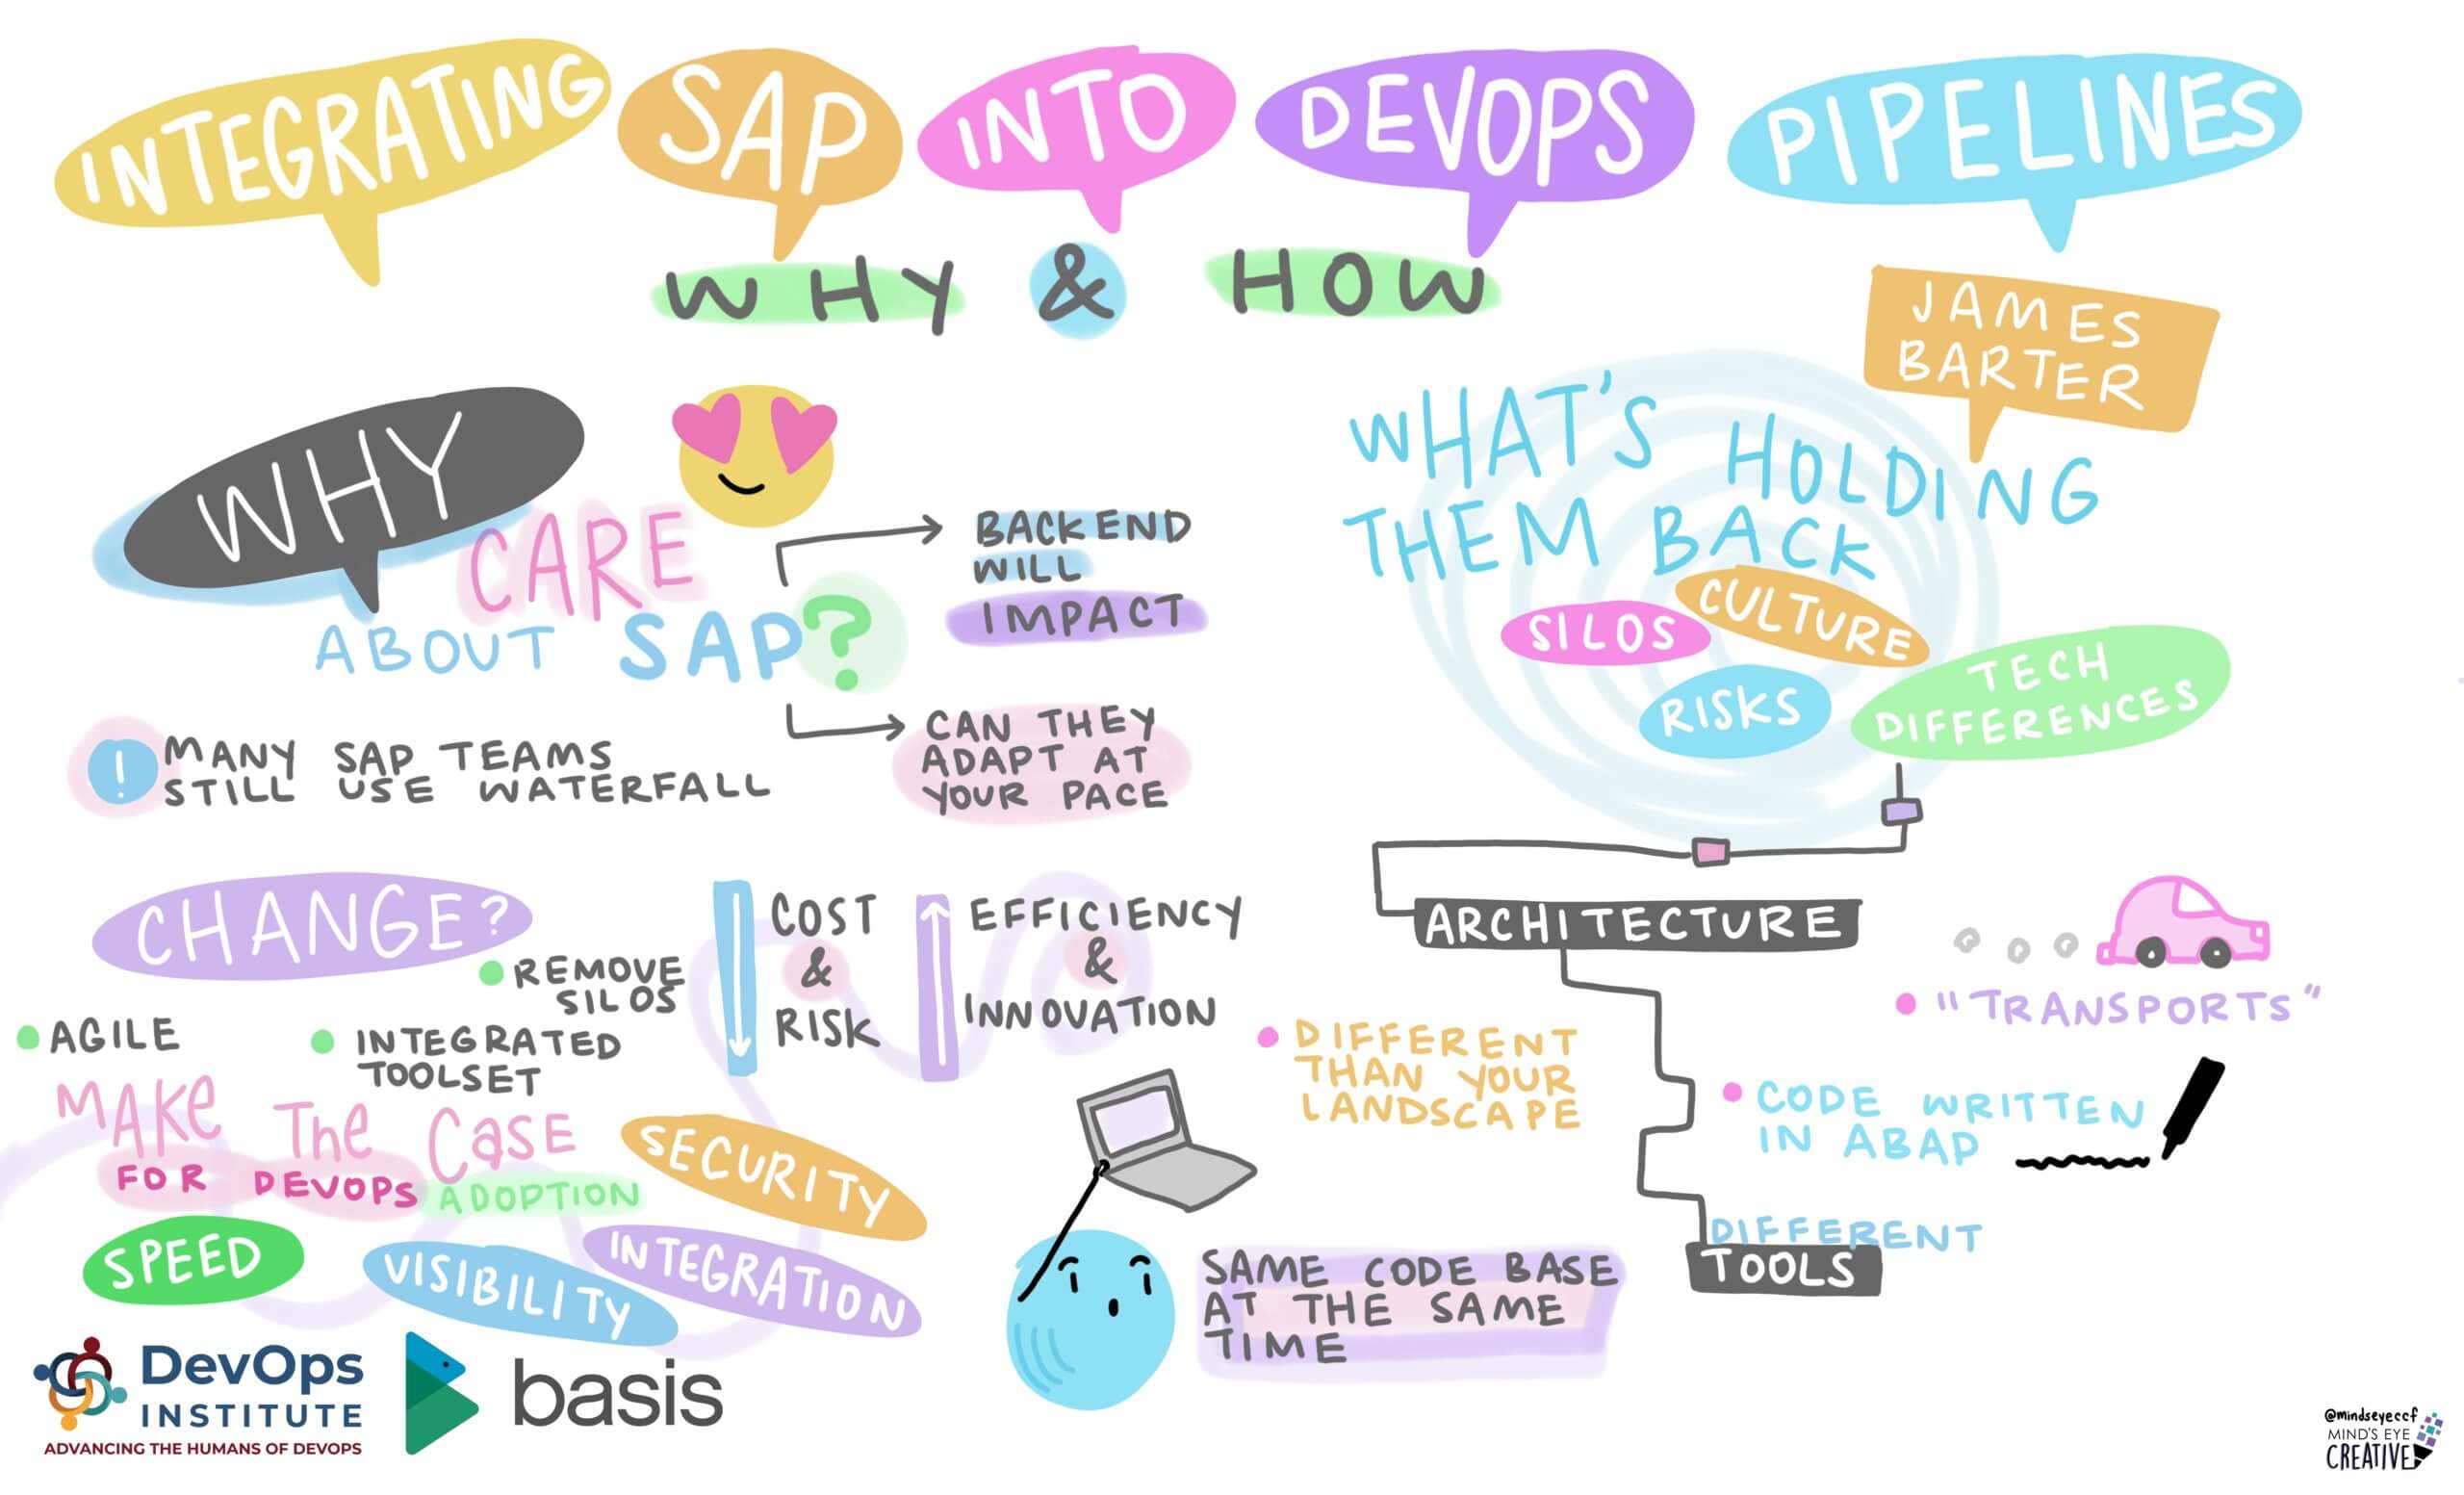 INTEGRATING SAP INTO DEVOPS PIPELINES
WHY & HOW
JAMES
BARTER
WHY
CARE
ABOUT SAP?
BACKEND
WILL
IMPACT
CAN THEY
ADAPT AT
YOUR PACE
! MANY SAP TEAMS
STILL USE WATERFALL
CHANGE?
REMOVE
SILOS
AGILE
INTEGRATED
TOOLSET
COST
&
RISK
EFFICIENCY
&
INNOVATION
MAKe The CaSE
FOR DEVOPS ADOPTION
SECURITY
SPEED
VISIBILITY
INTEGRATION
WHAT'S HOLDING
THEM BACK
SILOS
CULTURE
RISKS
TECH
DIFFERENCES
ARCHITECTURE
"TRANSPORTS"
DIFFERENT
THAN YOUR
LANDSCAPE
CODE WRITTEN
IN ABAP
DIFFERENT
TOOLS
SAME CODE BASE
AT THE SAME
TIME
DevOps
INSTITUTE
ADVANCING THE HUMANS OF DEVOPS
basis
@mindseyeccf
MIND'S EYE
CREATIVE